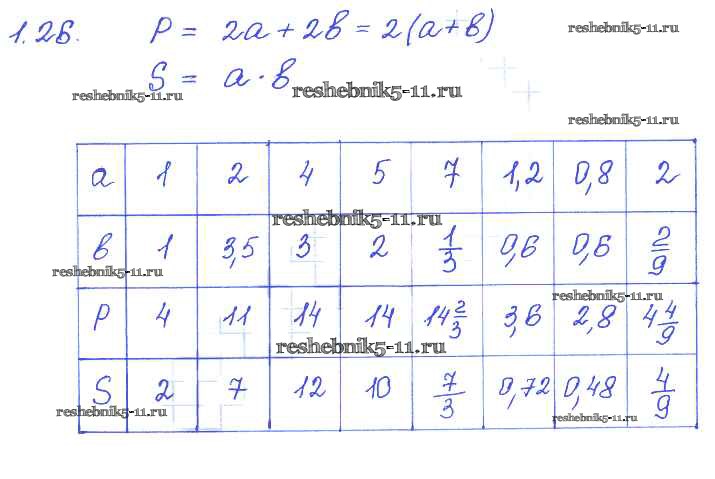 1.26. P = 2a + 2b = 2(a+b)
reshebnik5-11.ru
S = a · b
reshebnik5-11.ru
reshebnik5-11.ru
reshebnik5-11.ru
a 1 2 4 5 7 1,2 0,8 2
reshebnik5-11.ru
b 1 3,5 3 2 1/3 0,6 0,6 2/9
reshebnik5-11.ru
reshebnik5-11.ru
P 4 11 14 14 14 2/3 3,6 2,8 4 4/9
reshebnik5-11.ru
S 2 7 12 10 7/3 0,72 0,48 4/9
reshebnik5-11.ru
reshebnik5-11.ru